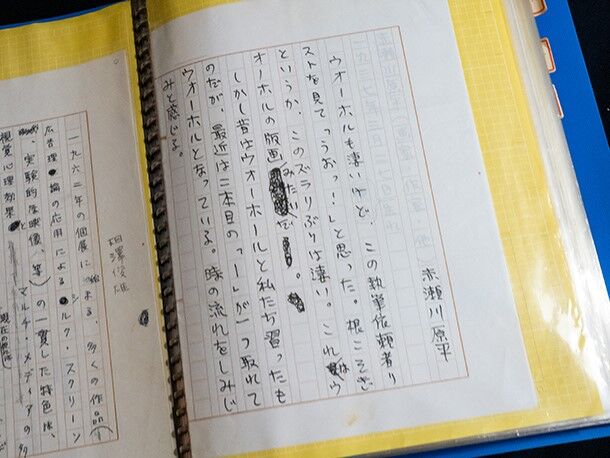 赤瀬川原平
ウオーホルも凄いけど、この執筆依頼者リ
ストを見て「うおっー！」と思った。根こそぎ
というか、このズラリぶりは凄い。これはウ
オーホルの版画みたいだ。
しかし昔はウオーホルと私たち習ったも
のだが、最近は二本目の「ー」が一つ取れて
ウオーホルとなっている。時の流れをしみじ
みと感じる。
相澤俊雄
一九六二年の個展に始まる、多くの作品
広告理論の応用によるシルク・スクリーン
、実験的な映像、等）の一貫した特色は、
視覚心理効果と マルチ・メディアの多